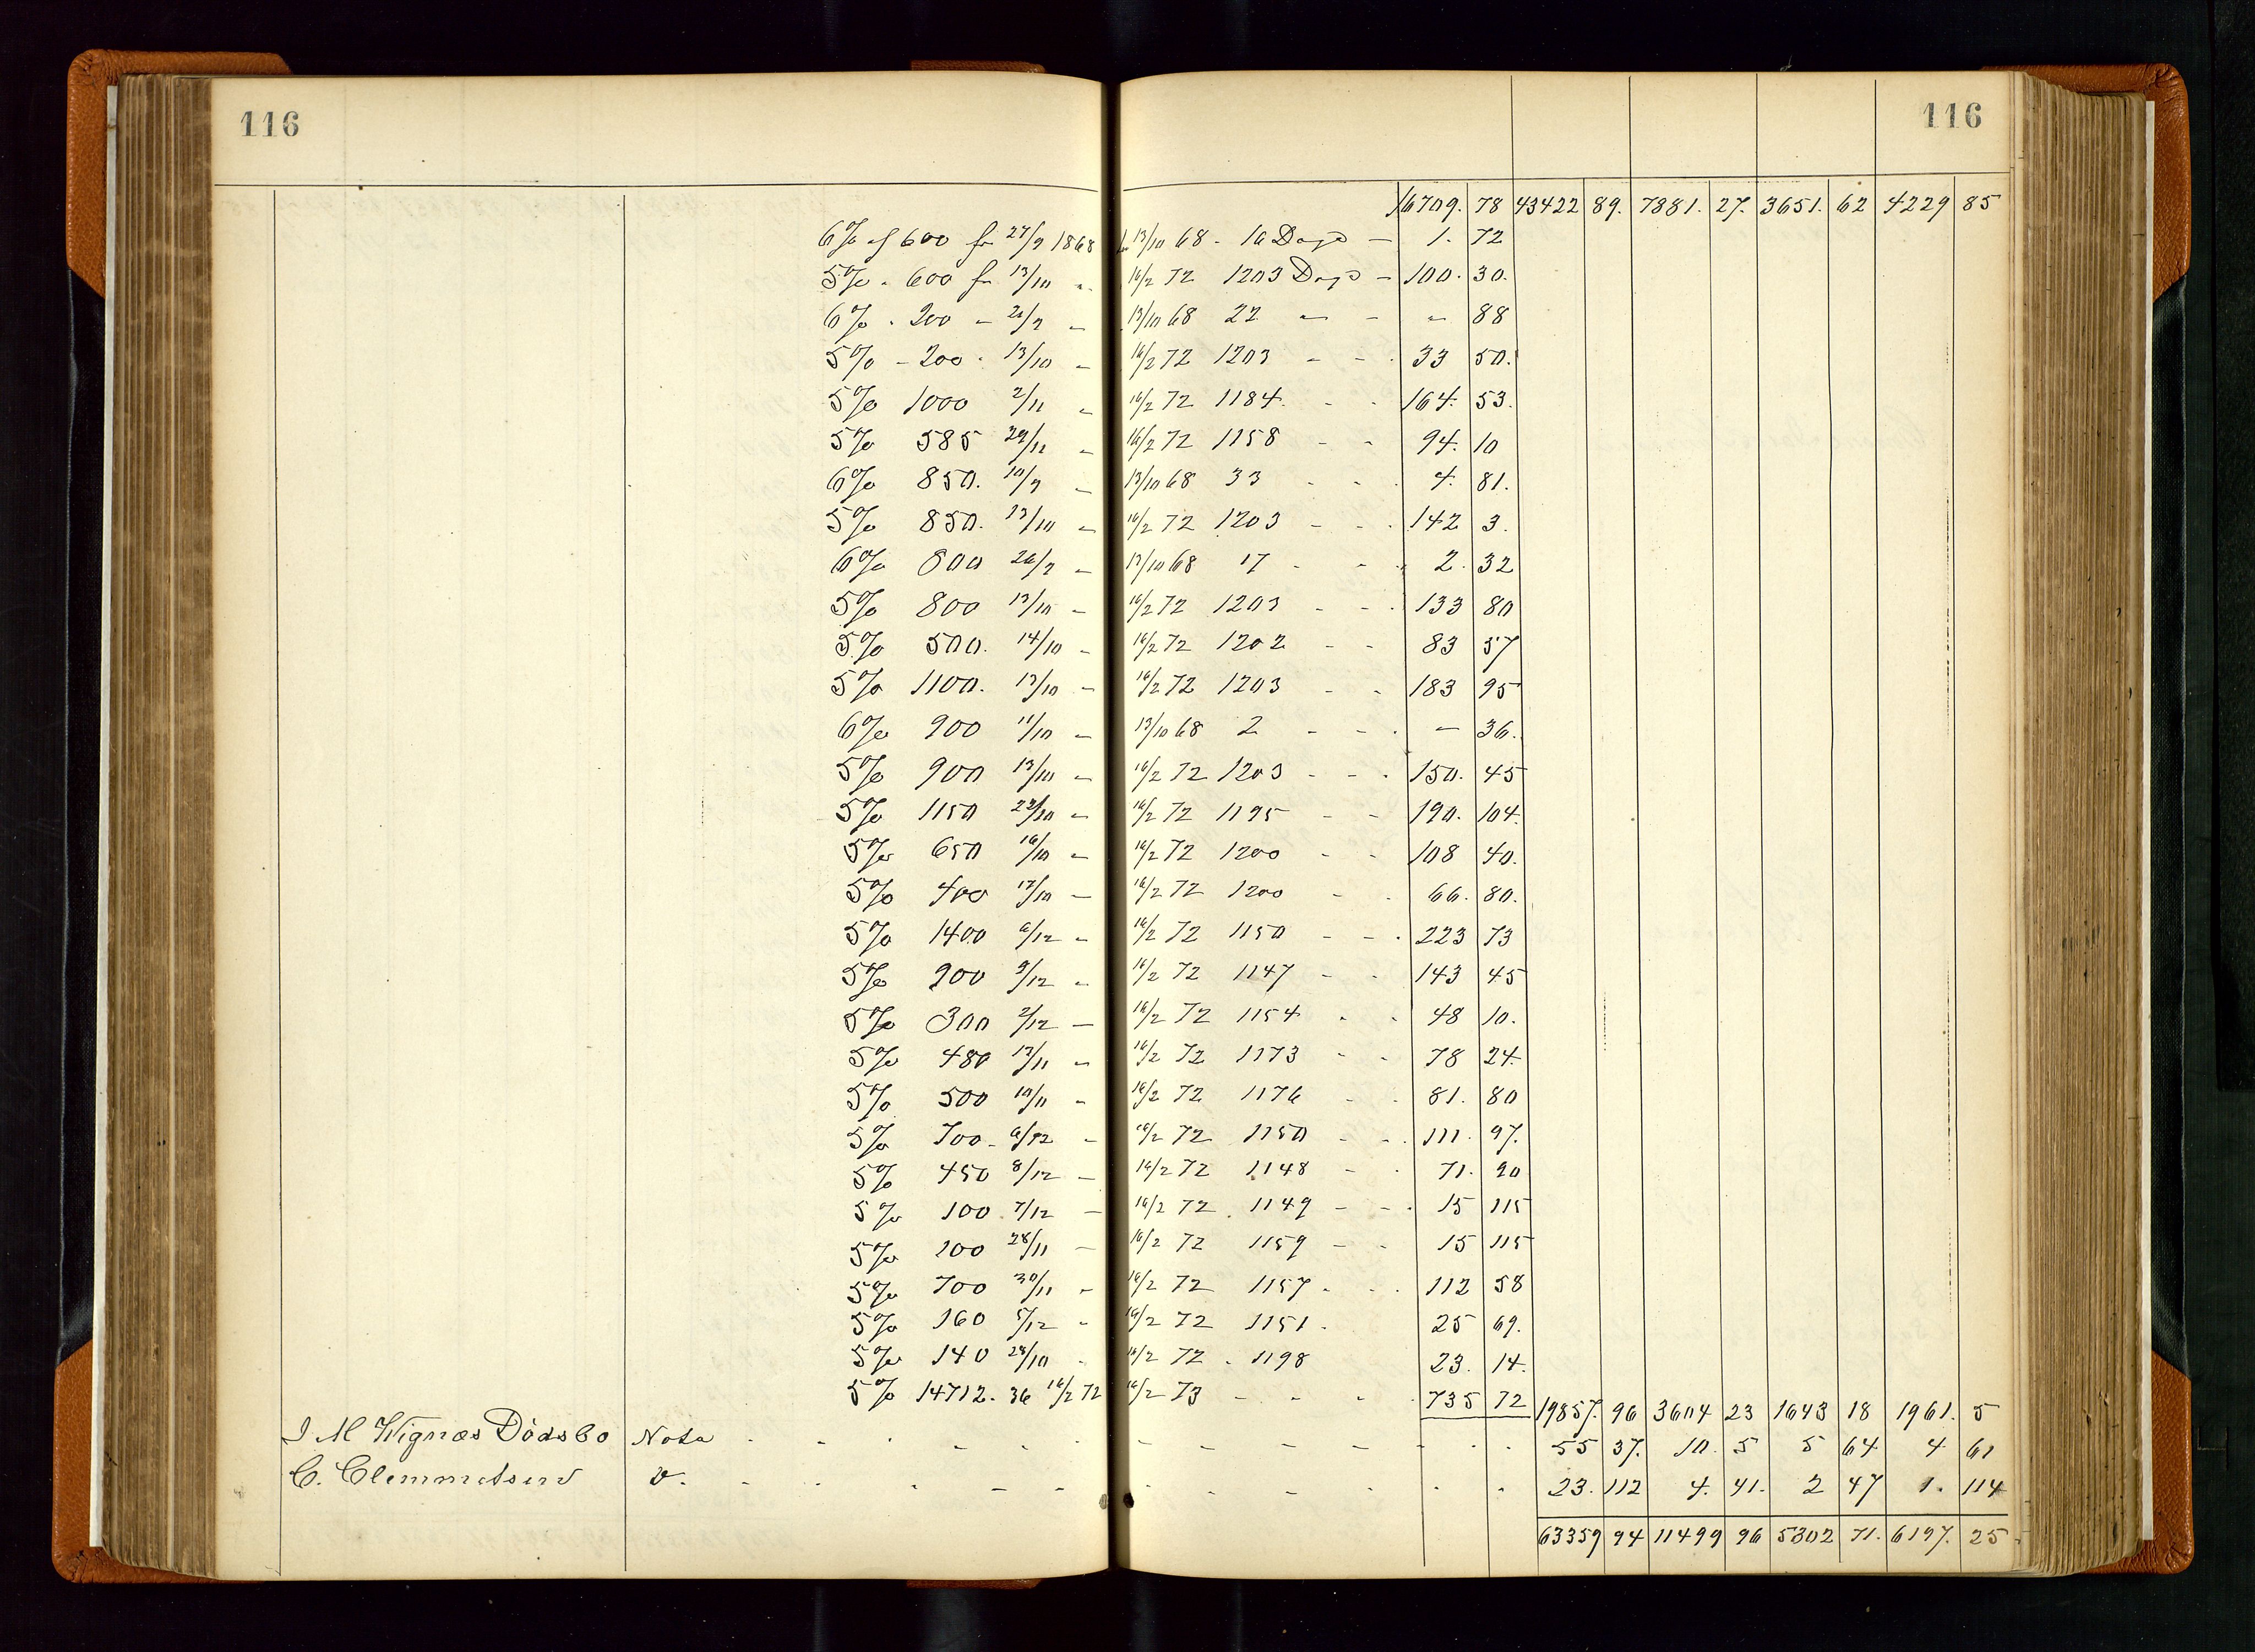 116 116
16709. 78 43422 89. 7881. 27. 3651. 62 4229 85
6% af 600 fr 27/9 1868 13/10 68 - 16 Dage - 1. 72
5% - 600 fr 13/10 - 16/2 72 1203 Dage - 100. 30.
6% - 200 - 21/9 - 13/10 68 22 - - - 88
5% - 200 - 13/10 - 16/2 72 1203 - - 33 50.
5% 1000 2/11 - 16/2 72 1184. - - 164. 53.
5% 585 29/11 - 16/2 72 1158 - - 94. 10
6% 850. 10/9 - 13/10 68 33 - - 4. 81.
5% 850. 13/10 - 16/2 72 1203 - - 142 3.
6% 800 26/9 - 13/10 68 17 - - 2. 32
5% 800 13/10 - 16/2 72 1203 - - 133 80
5% 500. 14/10 - 16/2 72 1202 - - 83 57
5% 1100. 13/10 - 16/2 72 1203 - - 183 95
6% 900 11/10 - 13/10 68 2 - - - 36.
5% 900 13/10 - 16/2 72 1203 - - 150. 45
5% 1150 22/10 - 16/2 72 1195 - - 190. 104.
5% 650 16/10 - 16/2 72 1200 - - 108 40.
5% 400 17/10 - 16/2 72 1200 - - 66. 80.
5% 1400 6/12 - 16/2 72 1150 - - 223 73
5% 900 9/12 - 16/2 72 1147 - - 143 45
5% 300 2/12 - 16/2 72 1154 - - 48 10.
5% 480 13/11 - 16/2 72 1173 - - 78 24.
5% 500 10/11 - 16/2 72 1176 - - 81. 80
5% 700 - 6/12 - 16/2 72 1150 - - 111. 97.
5% 450 8/12 - 16/2 72 1148 - - 71. 90
5% 100 7/12 - 16/2 72 1149 - - 15 115
5% 100 28/11 - 16/2 72 1159 - - 15 115
5% 700 30/11 - 16/2 72 1157 - - 112 58
5% 160 5/12 - 16/2 72 1151. 25 69.
5% 140 23/10 - 16/2 72 1198 23. 14.
5% 14712. 36 16/2 72 16/2 73 - - - 735 72 19857. 96 3604 23 1643 18 1961. 5
J M Wignæs Dødsbo Nota - - - 55 37. 10. 5 5 64 4 61
C. Clemmetsen v. - - - 23. 112 4. 41. 2 47 1. 114
63359 94 11499 96 5302 71. 6197. 25